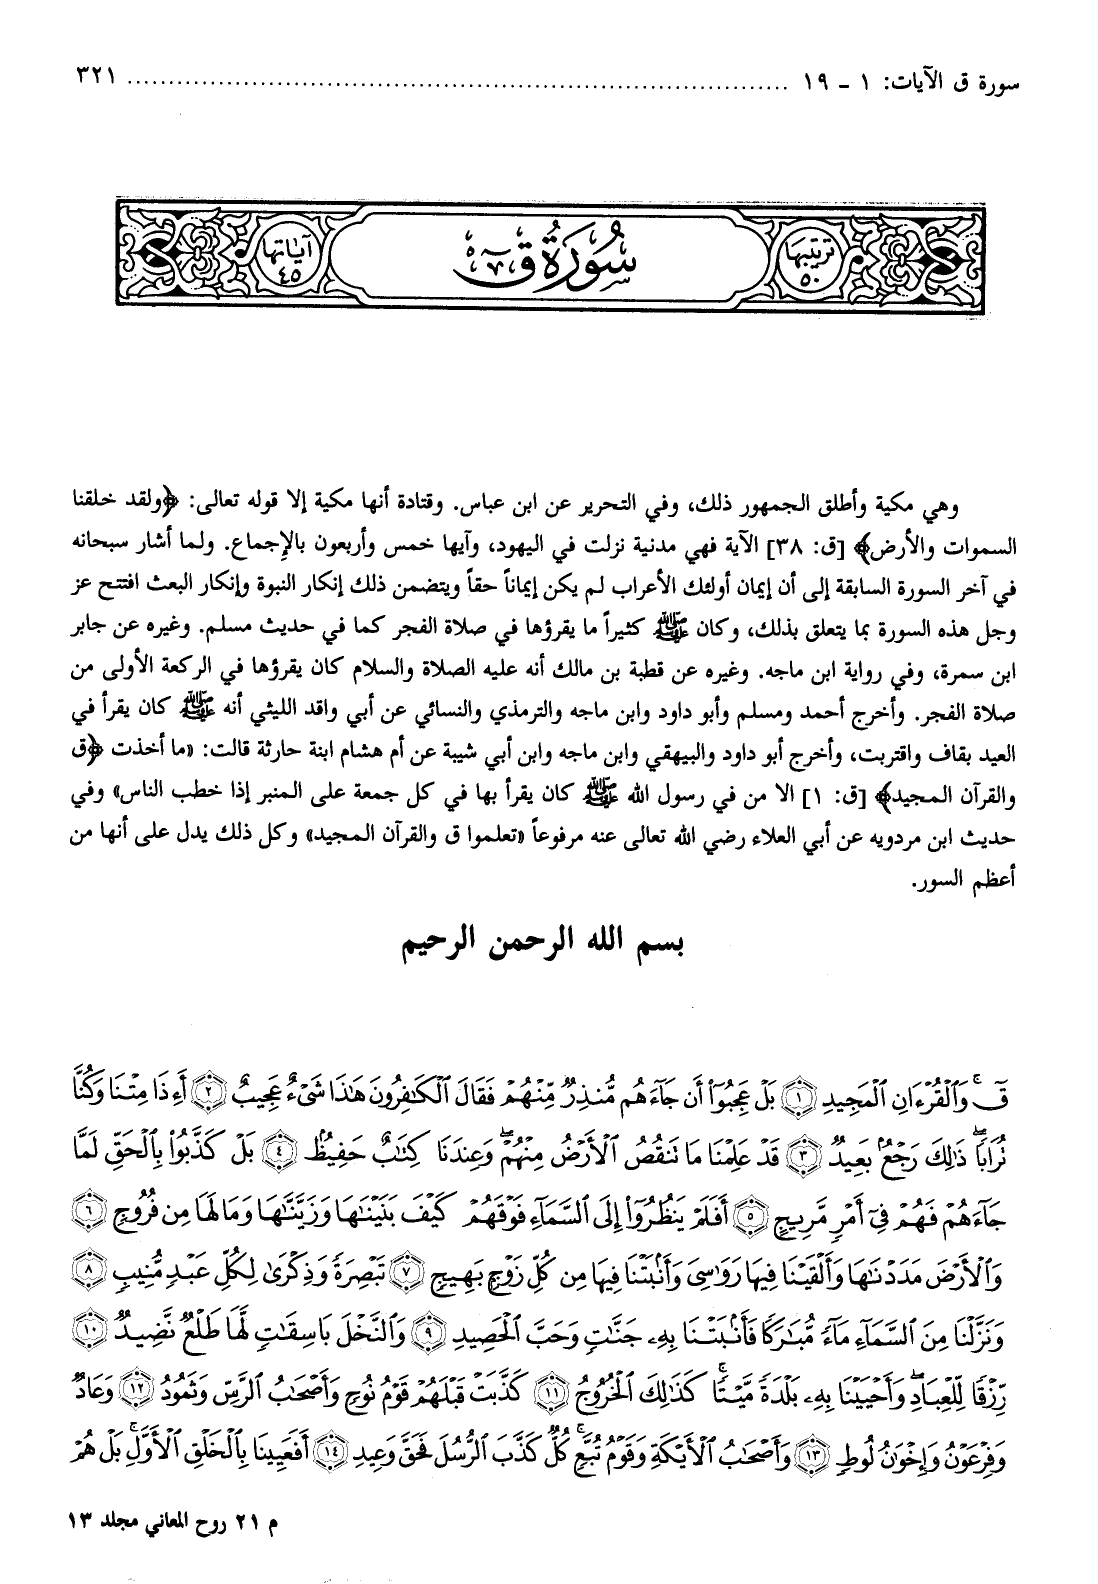 سورة ق الآيات: ١ ـ ١٩ ........................................................................ ٣٢١
ترتيبها
٥٠
سُورَةُ قٓ
آياتها
٤٥
وهي مكية وأطلق الجمهور ذلك، وفي التحرير عن ابن عباس. وقتادة أنها مكية إلا قوله تعالى: ﴿ولقد خلقنا
السموات والأرض﴾ [ق: ٣٨] الآية فهي مدنية نزلت في اليهود، وآيها خمس وأربعون بالإجماع. ولما أشار سبحانه
في آخر السورة السابقة إلى أن إيمان أولئك الأعراب لم يكن إيماناً حقاً ويتضمن ذلك إنكار النبوة وإنكار البعث افتتح عز
وجل هذه السورة بما يتعلق بذلك، وكان ﷺ كثيراً ما يقرؤها في صلاة الفجر كما في حديث مسلم. وغيره عن جابر
ابن سمرة، وفي رواية ابن ماجه. وغيره عن قطبة بن مالك أنه عليه الصلاة والسلام كان يقرؤها في الركعة الأولى من
صلاة الفجر. وأخرج أحمد ومسلم وأبو داود وابن ماجه والترمذي والنسائي عن أبي واقد الليثي أنه ﷺ كان يقرأ في
العيد بقاف واقتربت، وأخرج أبو داود والبيهقي وابن ماجه وابن أبي شيبة عن أم هشام ابنة حارثة قالت: «ما أخذت ﴿ق
والقرآن المجيد﴾ [ق: ١] الا من في رسول الله ﷺ كان يقرأ بها في كل جمعة على المنبر إذا خطب الناس» وفي
حديث ابن مردويه عن أبي العلاء رضي الله تعالى عنه مرفوعاً «تعلموا ق والقرآن المجيد» وكل ذلك يدل على أنها من
أعظم السور.
بسم الله الرحمن الرحيم
قٓۚ وَٱلْقُرْءَانِ ٱلْمَجِيدِ ١ بَلْ عَجِبُوٓا۟ أَن جَآءَهُم مُّنذِرٌ مِّنْهُمْ فَقَالَ ٱلْكَٰفِرُونَ هَٰذَا شَىْءٌ عَجِيبٌ ٢ أَءِذَا مِتْنَا وَكُنَّا
تُرَابًاۖ ذَٰلِكَ رَجْعٌۢ بَعِيدٌ ٣ قَدْ عَلِمْنَا مَا تَنقُصُ ٱلْأَرْضُ مِنْهُمْۖ وَعِندَنَا كِتَٰبٌ حَفِيظٌۢ ٤ بَلْ كَذَّبُوا۟ بِٱلْحَقِّ لَمَّا
جَآءَهُمْ فَهُمْ فِىٓ أَمْرٍ مَّرِيجٍ ٥ أَفَلَمْ يَنظُرُوٓا۟ إِلَى ٱلسَّمَآءِ فَوْقَهُمْ كَيْفَ بَنَيْنَٰهَا وَزَيَّنَّٰهَا وَمَا لَهَا مِن فُرُوجٍ ٦
وَٱلْأَرْضَ مَدَدْنَٰهَا وَأَلْقَيْنَا فِيهَا رَوَٰسِىَ وَأَنۢبَتْنَا فِيهَا مِن كُلِّ زَوْجٍۭ بَهِيجٍ ٧ تَبْصِرَةً وَذِكْرَىٰ لِكُلِّ عَبْدٍ مُّنِيبٍ ٨
وَنَزَّلْنَا مِنَ ٱلسَّمَآءِ مَآءً مُّبَٰرَكًا فَأَنۢبَتْنَا بِهِۦ جَنَّٰتٍ وَحَبَّ ٱلْحَصِيدِ ٩ وَٱلنَّخْلَ بَاسِقَٰتٍ لَّهَا طَلْعٌ نَّضِيدٌ ١٠
رِّزْقًا لِّلْعِبَادِۖ وَأَحْيَيْنَا بِهِۦ بَلْدَةً مَّيْتًاۚ كَذَٰلِكَ ٱلْخُرُوجُ ١١ كَذَّبَتْ قَبْلَهُمْ قَوْمُ نُوحٍ وَأَصْحَٰبُ ٱلرَّسِّ وَثَمُودُ ١٢ وَعَادٌ
وَفِرْعَوْنُ وَإِخْوَٰنُ لُوطٍ ١٣ وَأَصْحَٰبُ ٱلْأَيْكَةِ وَقَوْمُ تُبَّعٍۚ كُلٌّ كَذَّبَ ٱلرُّسُلَ فَحَقَّ وَعِيدِ ١٤ أَفَعَيِينَا بِٱلْخَلْقِ ٱلْأَوَّلِۚ بَلْ هُمْ
م ٢١ روح المعاني مجلد ١٣